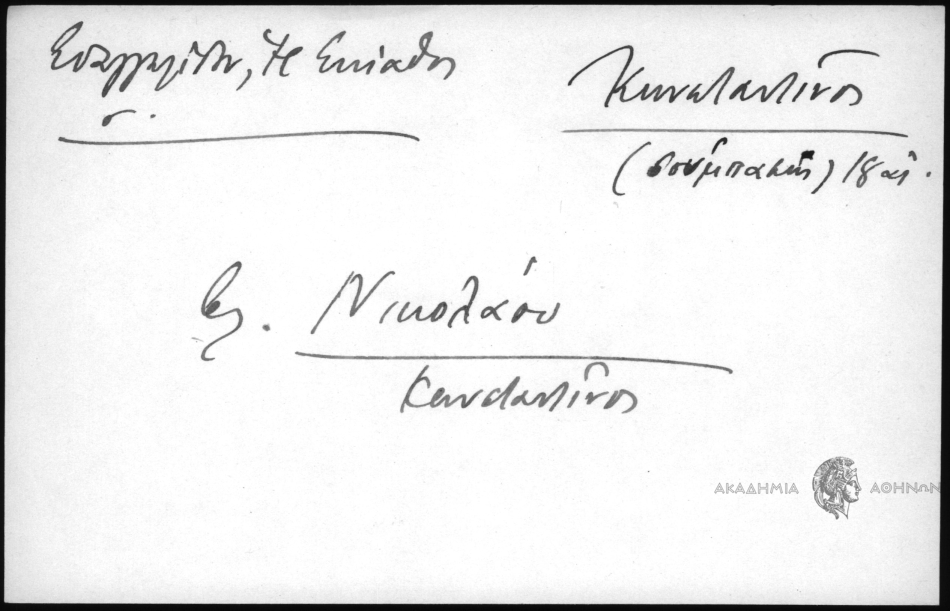 Ευαγγελίδη, Η Σκιάθος
σ.
Κωνσταντῖνος
(σουμπασῆς) 18 αἰ.
βλ. Νικολάου
Κωνσταντῖνος
ΑΚΑΔΗΜΙΑ ΑΘΗΝΩΝ